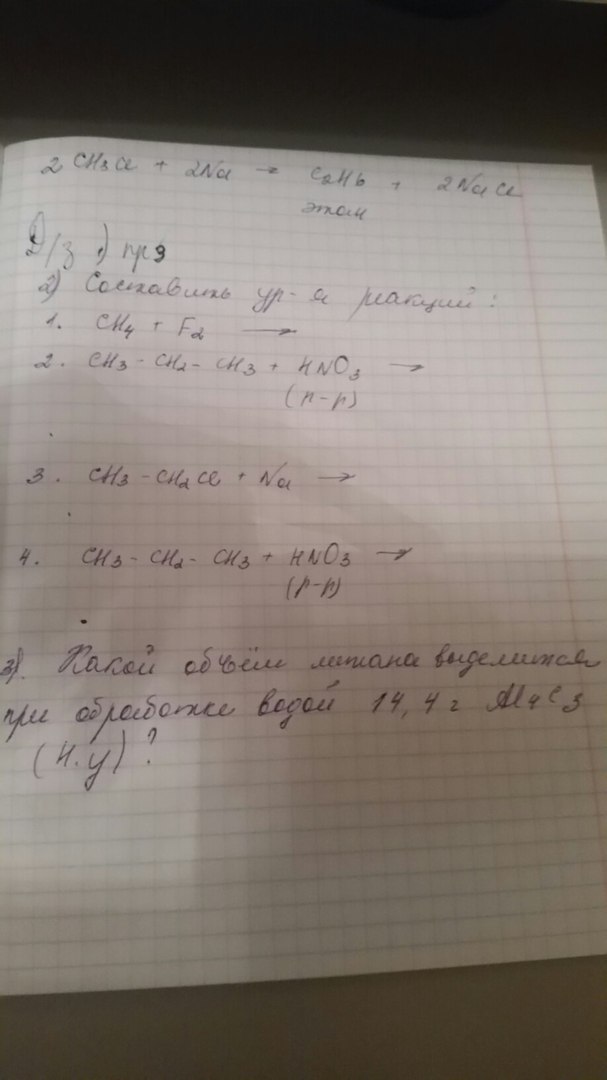 2 CH3Cl + 2Na → C2H6 + 2NaCl
этан
D/з 1) пр9
2) Составить ур-я реакций:
1. CH4 + F2 →
2. CH3 - CH2 - CH3 + HNO3 →
(р-р)
3. CH3 - CH2Cl + Na →
4. CH3 - CH2 - CH3 + HNO3 →
(р-р)
3). Какой объём метана выделится
при обработке водой 14,4 г Al4C3
(н.у)?